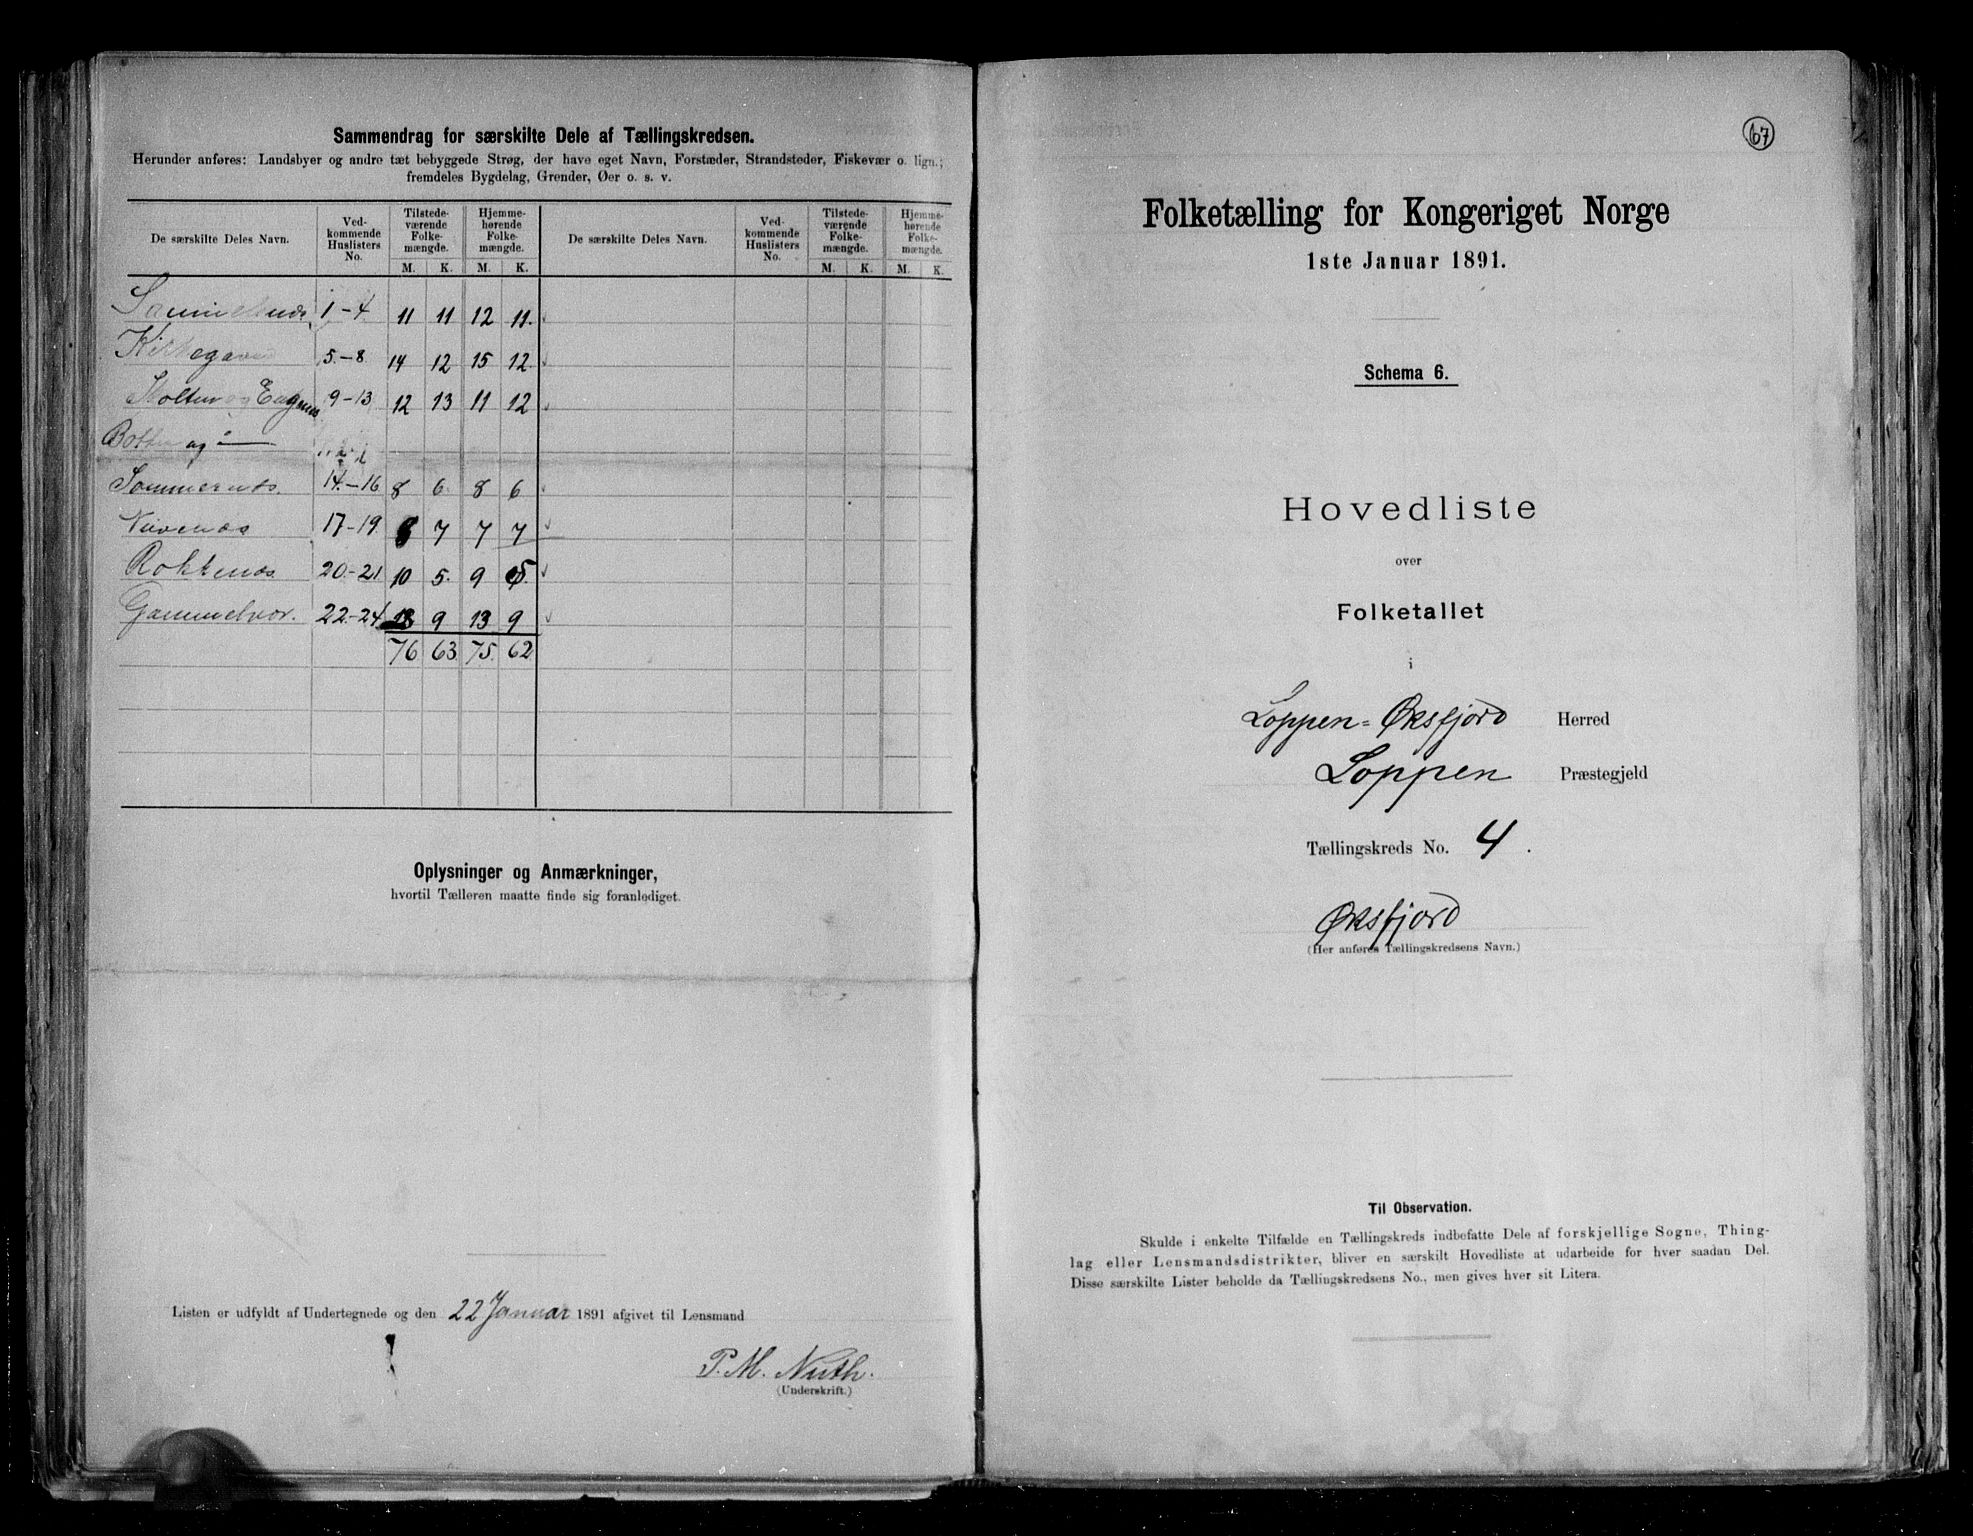 Sammendrag for særskilte Dele af Tællingskredsen.
Herunder anføres: Landsbyer og andre tæt bebyggede Strøg, der have eget Navn, Forstæder, Strandsteder, Fiskevær o. lign.;
fremdeles Bygdelag, Grender, Øer o. s. v.
De særskilte Deles Navn. Ved-kommende Huslisters No. Tilstede-værende Folke-mængde. Hjemme-hørende Folke-mængde. De særskilte Deles Navn. Ved-kommende Huslisters No. Tilstede-værende Folke-mængde. Hjemme-hørende Folke-mængde.
M. K. M. K. M. K. M. K.
1-4 11 11 12 11.
Kirkegaard 5.-8 14 12 15 12.
9-13 12 13 11 12
og
Sommernæs. 14.-16 8 6. 8 6
17-19. 7 7 7
20.-21 10 5. 9 5.
Gammelvær. 22.-24 13 9 13 9
76 63 75. 62
Oplysninger og Anmærkninger,
hvortil Tælleren maatte finde sig foranlediget.
Listen er udfyldt af Undertegnede og den 22 Januar 1891 afgivet til Lensmand
P. M. Nuth.
(Underskrift.)
67
Folketælling for Kongeriget Norge
1ste Januar 1891.
Schema 6.
Hovedliste
over
Folketallet
i
Loppen-Øksfjord Herred
Loppen Præstegjeld
Tællingskreds No. 4.
Øksfjord
(Her anføres Tællingskredsens Navn.)
Til Observation.
Skulde i enkelte Tilfælde en Tællingskreds indbefatte Dele af forskjellige Sogne, Thing-
lag eller Lensmandsdistrikter, bliver en særskilt Hovedliste at udarbeide for hver saadan Del.
Disse særskilte Lister beholde da Tællingskredsens No., men gives hver sit Litera.